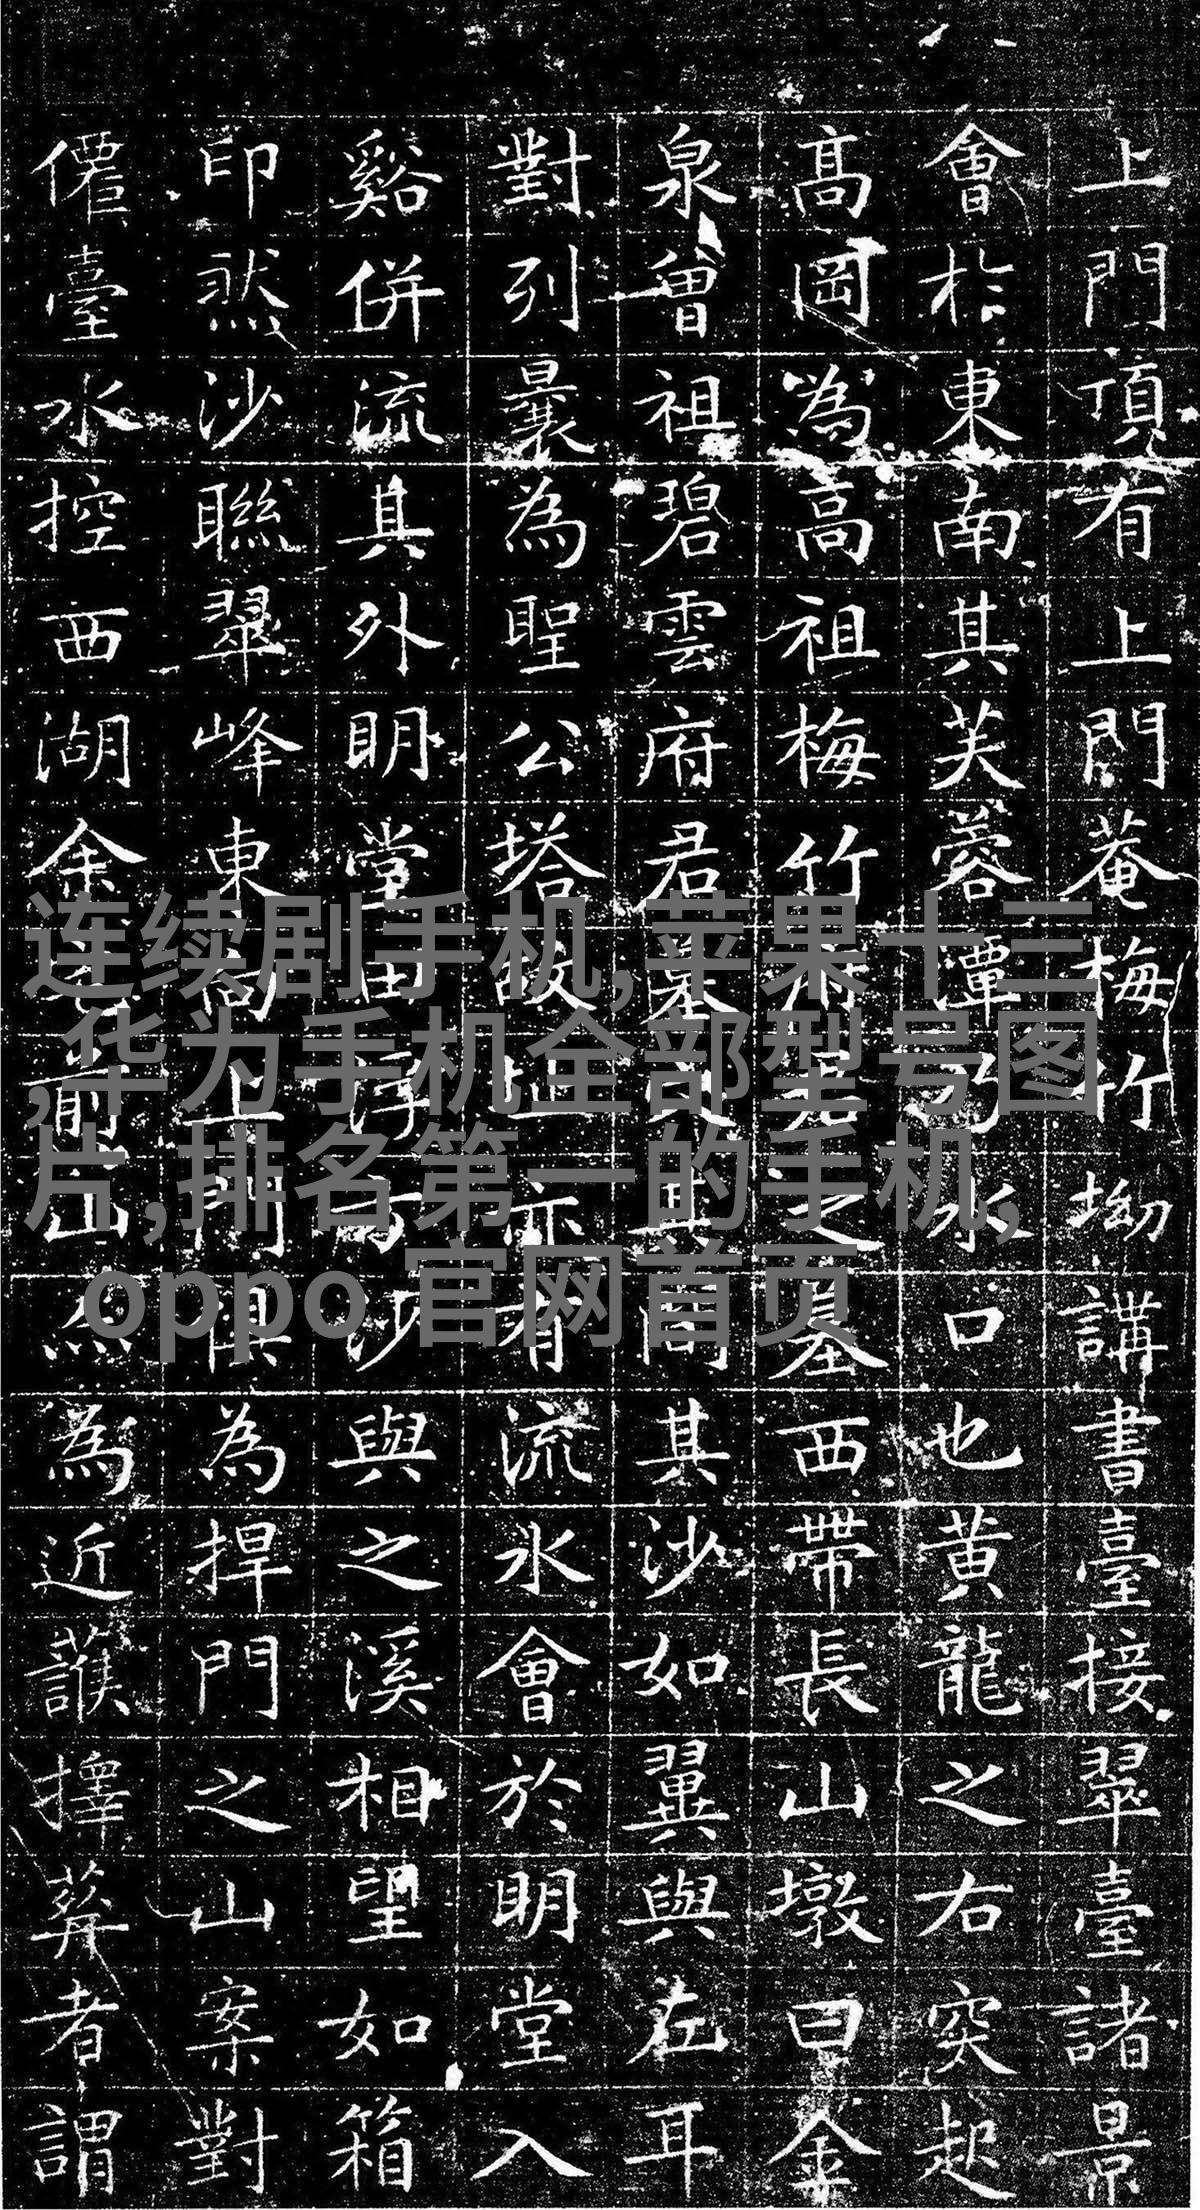 上門頂有上門菴梅竹坳講書臺接翠臺諸景
會於東南其芙蓉潭乃水口也黄龍之右突起
高岡為高祖梅竹府君之墓西帶長山墩曰金
泉曾祖碧雲府君墓其沙如翼與左耳
對列曩為聖公塔故址亦有流水會於明堂入
谿併流其外明堂田浮與之溪相望如箱
印然沙聯翠峰東向上門俱為捍門之山案對
僊臺水控西湖余前山為近蓋擇葬者謂
连续剧手机,苹果十三
,华为手机全部型号图
片,排名第一的手机,
oppo官网首页